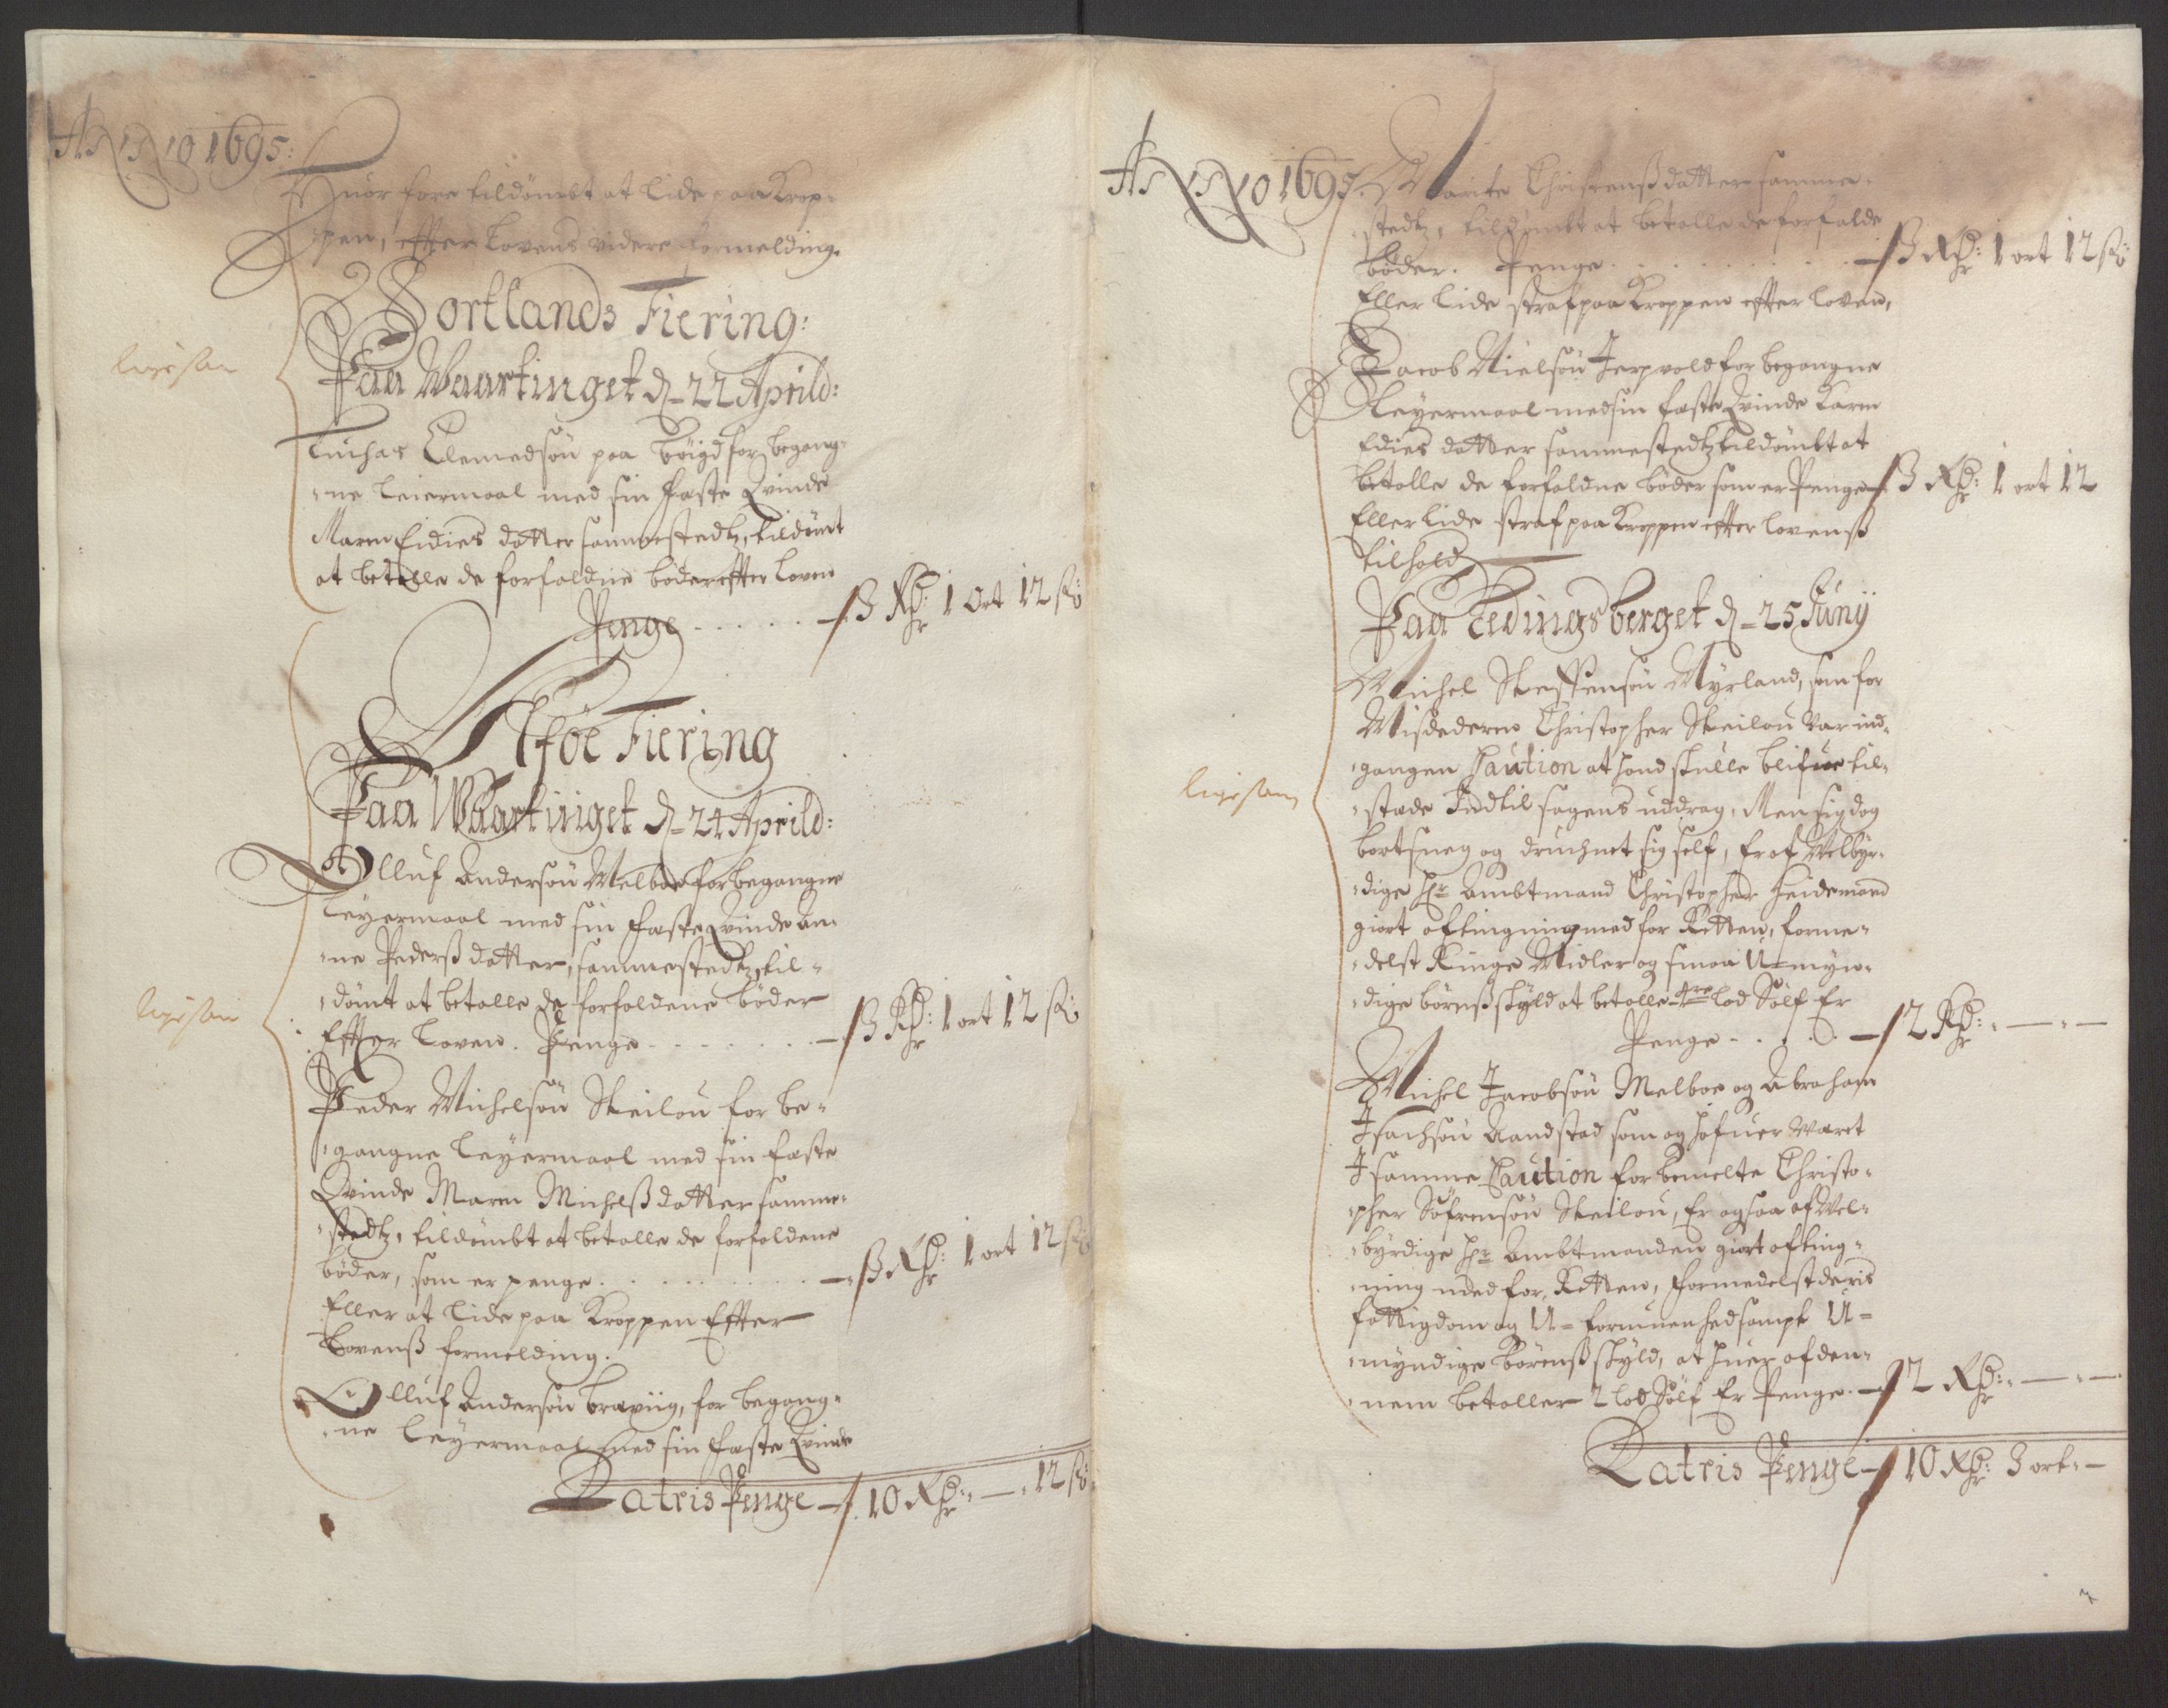 Anno 1695:
Huor fore tildömbt at lide paa Krop-
pen, effter Lovens videre formelding.
Sortlands Fiering:
Paa Waartinget d. 22 Aprild:
Luchas Clemedsøn paa Böigd for begang-
ne Leiermaal med sin fæste Qvinde
Maren Eidies datter sammestedtz, tildömt
at betalle de forfaldne böder effter Loven
Penge - - - - - 3 Rdr: 1 Ort 12 ß:
Paa Waartinget d. 24 Aprild:
Olluf Andersøn Melboe for begangne
Leyermaal med sin fæste Qvinde An-
ne Pederß datter, sammestedtz, til-
dömt at betalle de forfaldene böder
Effter Loven. Penge - - - - - 3 Rdr: 1 ort 12 ß:
Peder Michelsøn Skeilou for be-
gangne Leyermaal med sin fæste
Qvinde Maren Michelß datter samme-
stedtz, tildömbt at betalle de forfaldene
böder, som er penge . . . . . 3 Rdr: 1 ort 12 ß
Eller at lide paa Kroppen Effter
Lovenß formelding.
Olluf Andersøn for begang-
ne Leyermaal med sin fæste Qvinde
Latris Penge 10 Rdr: - 12 ß:
ligesom
ligesom
Anno 1695.
Marite Christenß datter samme-
stedtz, tildömbt at betalle de forfaldne
böder. Penge . . . . . 3 Rdr: 1 ort 12 ß:
Eller lide straf paa Kroppen effter loven,
Jacob Nielsøn for begangne
Leyermaal med sin fæste Qvinde Karen
Edies datter sammestedtz tildömbt at
betalle de forfaldne böder som er Penge 3 Rdr: 1 ort 12
Eller lide straf paa Kroppen effter lovenß
tilhold
Paa Tedingsberget d. 25 Juny
Michel Steffensøn Myrland, som for
Misdederen Christopher Skeilou var ind-
gangen Caution at hand skulle blifue til-
stæde Indtil sagens uddrag, Men sig dog
bortsneg og druchnet sig self, Er af Velbyr-
dige Hr Ambtmand Christopher Heidemand
giort aftingning med for Retten, forme-
delst Ringe Midler og smaa U-myn-
dige börnß skyld at betalle 4re lod Sölf Er
Penge - . . . 2 Rdr: - -
Michel Jacobsøn Melboe og Abraham
Isachsøn Sandstad som og hafuer Waret
I samme Caution for bemelte Christo-
pher Söfrensøn Skeilou, Er ogsaa af Vel-
byrdige Hr Ambtmanden giort afting-
ning med for Retten, formedelst deris
fattigdom og U-formuenhed sampt U-
myndige Börenß skyld, at huer af den-
nem betaller 2 lod Sölf Er Penge. 2 Rdr: - -
Latris Penge 10 Rdr: 3 ort: -
ligesom